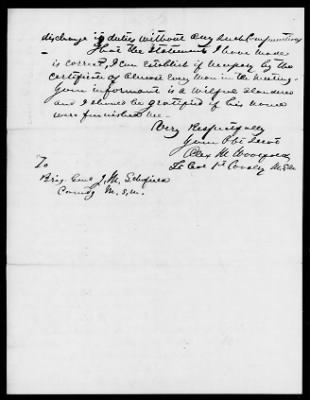 discharge is duties without any such compunctions
- That the statement I have made
is correct, I can establish if necessary by the
certificate of almost every man in the meeting.
Your informant is a wilful slanderer
and I should be gratified if his name
were furnished me -
Very Respectfully
Your Obt Servt
Alex M Woolfolk
Lt Col 1st Cavalry M.S.M
To
Brig Genl J. M. Schofield
Comdg M. S. M.